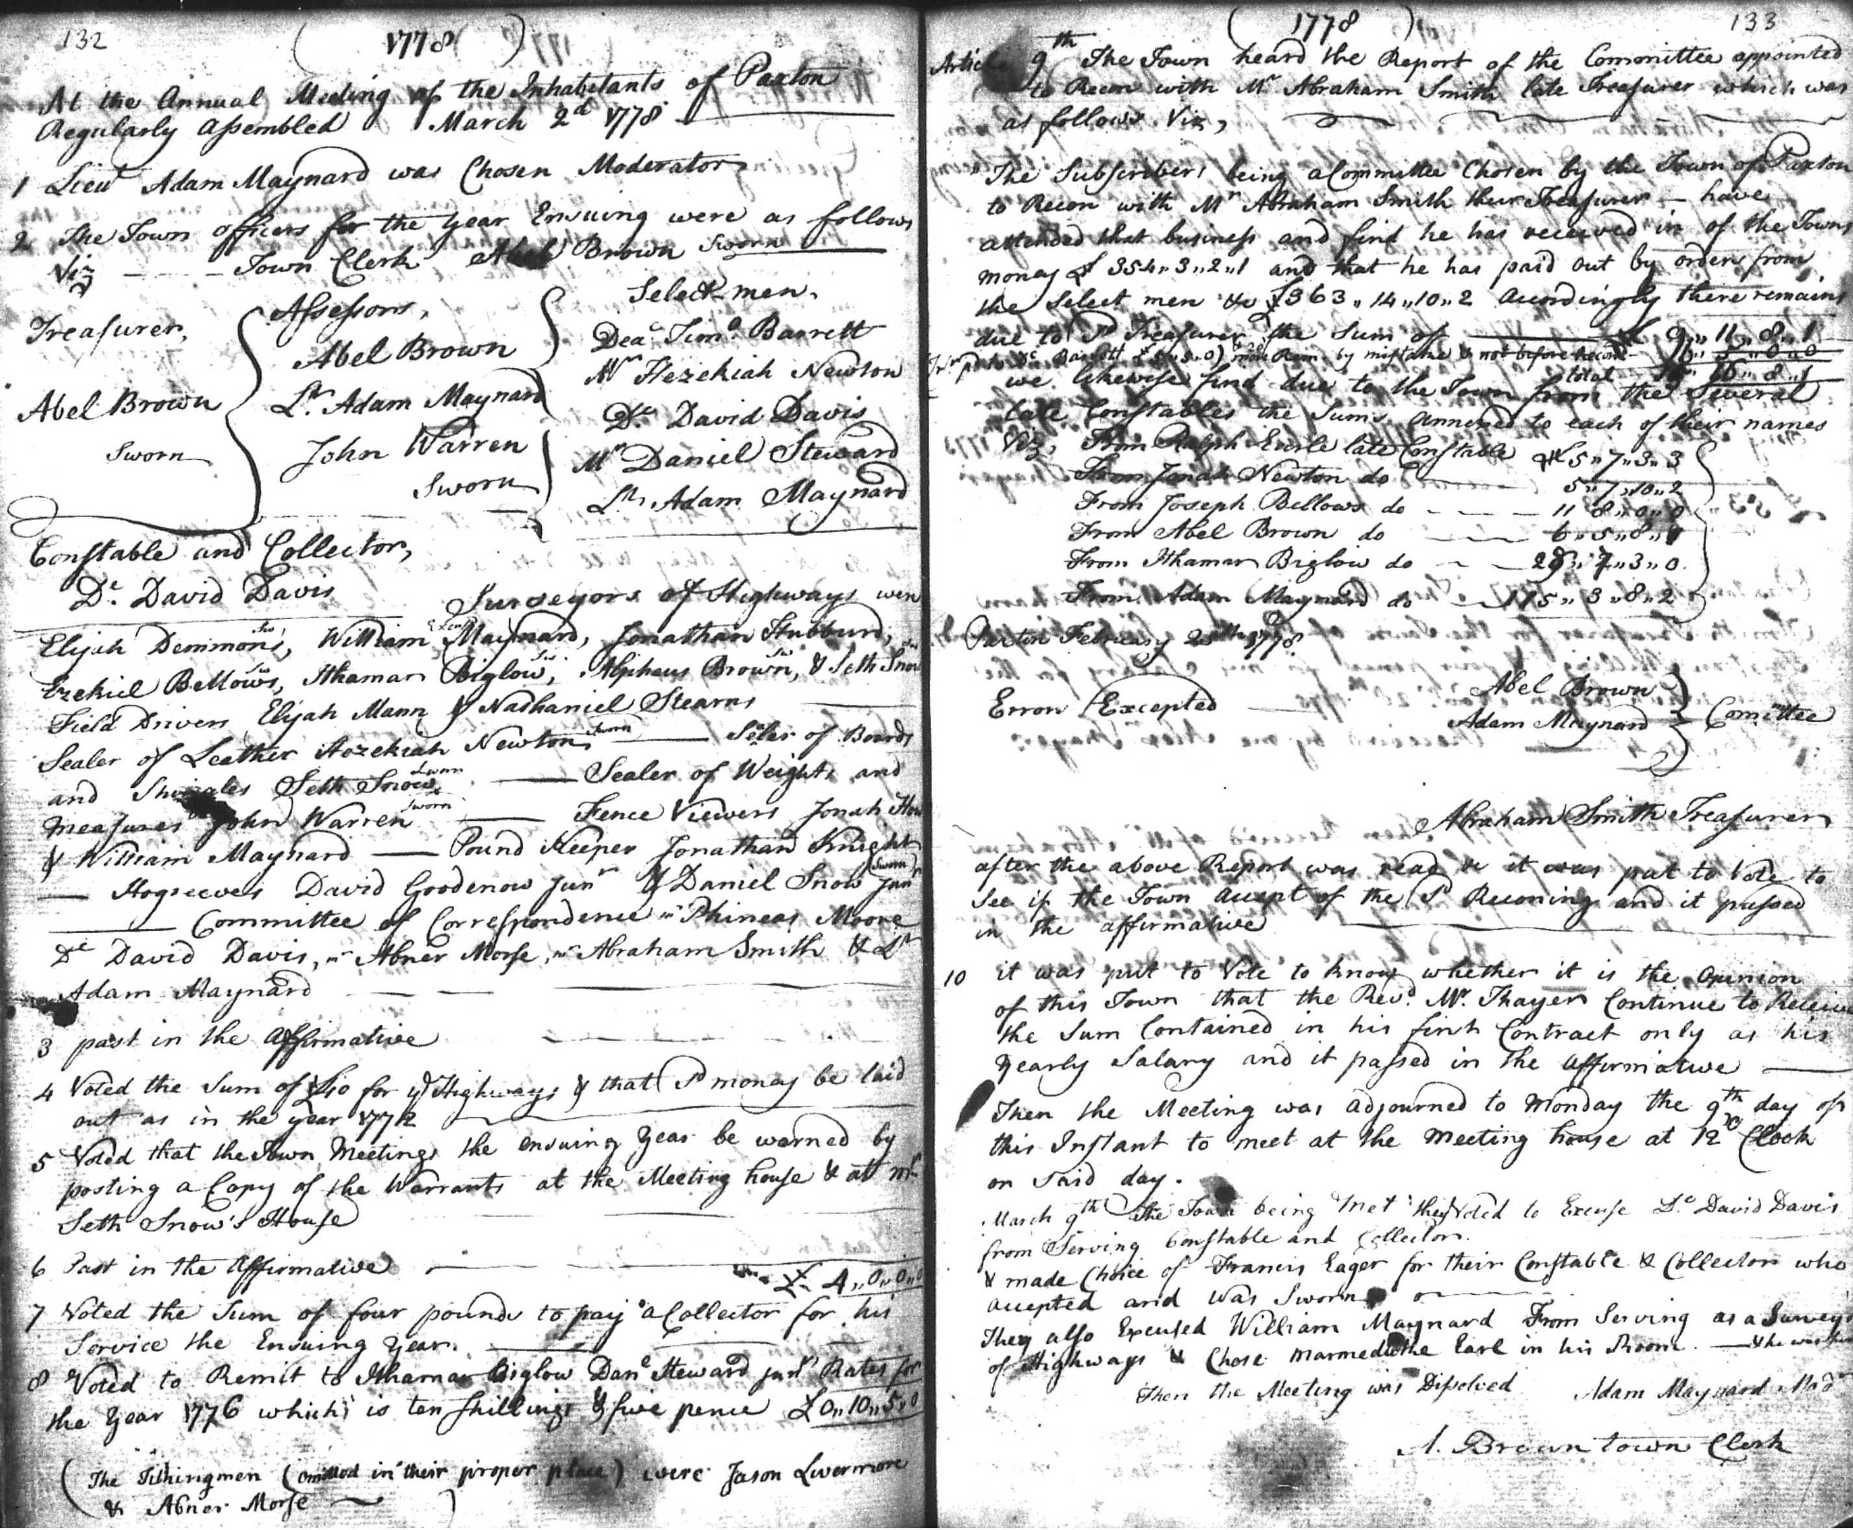 132
(1778)
At the Annual Meeting of the Inhabitants of Paxton
Regularly Assembled March 2d 1778
1 Lieut Adam Maynard was Chosen Moderator
2 The Town officers for the year Ensuing were as follows
Viz Town Clerk Abel Brown Sworn
Treasurer,
Abel Brown
Sworn
Assessors,
Abel Brown
Lt Adam Maynard
John Warren
Sworn
Select men,
Deac Timo Barrett
Mr Hezekiah Newton
Dc David Davis
Mr Daniel Steward
Lt Adam Maynard
Constable and Collector,
Dc David Davis
Surveyors of Highways were
Elijah Demmons, William Maynard, Jonathan Hubburd,
Ezekiel Bellows, Ithamar Biglow, Alpheus Brown, & Seth Snow
Field Drivers Elijah Mann & Nathaniel Stearns
Sealer of Leather Hezekiah Newton Sworn Sealer of Boards
and Shingles Seth Snow Sworn Sealer of Weights and
measures John Warren Sworn Fence Viewers Jonah How
& William Maynard Pound Keeper Jonathan Knight
Hogreeves David Goodenow Junr & Daniel Snow Junr Sworn
Committee of Correspondence mr Phineas Moore
Dc David Davis, mr Abner Morse, mr Abraham Smith & Lt
Adam Maynard
3 past in the affirmative
4 Voted the Sum of for ye Highways & that sd money be laid
out as in the year 1772
5 Voted that the Town Meetings the ensuing year be warned by
posting a Copy of the Warrants at the Meeting house & at mr
Seth Snow's House
6 Past in the affirmative
£ 4,,0,,0,,0
7 Voted the Sum of four pounds to pay a Collector for his
Service the Ensuing year.
8 Voted to Remit to Ithamar Biglow Danl Steward junrs Rates for
the year 1776 which is ten shillings & five pence £0,,10,,5,,0
(The Tithingmen (omitted in their proper place) were Jason Livermore
& Abner Morse)
(1778)
133
Article 9th The Town heard the Report of the Committee appointed
to Recon with Mr Abraham Smith late Treasurer which was
as follows Viz,
The Subscribers being a Committee Chosen by the Town of Paxton
to Recon with Mr Abraham Smith their Treasurer have
attended that business and find he has received in of the Towns
money £ 354,,3,,2,,1 and that he has paid out by orders from
the Select men &c £363,,14,,10,,2 Accordingly there remains
due to sd Treasurer the Sum of £ 9,,11,,8,,1
by mistake & not before Recond
total
we likewise find due to the Town from the Several
late Constables the Sums annexed to each of their names
Viz, From Ralph Earle late Constable £5,,7,,3,,3
From Jonah Newton do 5,,7,,10,,2
From Joseph Bellows do 11,,8,,0,,0
From Abel Brown do
From Ithamar Biglow do 29,,7,,3,,0
From Adam Maynard do 175,,3,,8,,2
Paxton February 1778
Errors Excepted
Abel Brown
Adam Maynard
Comittee
Abraham Smith Treasurer
after the above Report was read & it was put to Vote to
See if the Town accept of the sd Reconing and it passed
in the affirmative
10 it was put to Vote to know whether it is the opinion
of this Town that the Revd Mr Thayer Continue to Receive
the Sum Contained in his first Contract only as his
yearly Salary and it passed in the affirmative
Then the Meeting was adjourned to Monday the 9th day of
this Instant to meet at the meeting house at 12 oClock
on said day.
March 9th The Town being met they Voted to Excuse Dc David Davis
from Serving Constable and Collector.
& made Choice of Francis Eager for their Constable & Collector who
accepted and was Sworn
They also Excused William Maynard From Serving as a Survey
of Highways & Chose Marmeduke Earl in his Room. & he was
Then the Meeting was Dissolved Adam Maynard Modr
A. Brown town Clerk